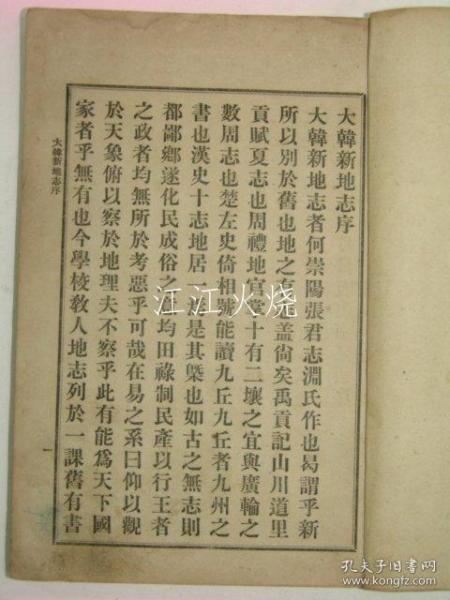 大韓新地志序
大韓新地志者何崇陽張君志淵氏作也曷謂乎新
所以別於舊也地之有志盖尙矣禹貢記山川道里
貢賦夏志也周禮地官掌十有二壤之宜與廣輪之
數周志也楚左史倚相號能讀九丘九丘者九州之
書也漢史十志地居一焉是其槩也如古之無志則
都鄙鄉遂化民成俗之 均田祿制民產以行王者
之政者均無所於考惡乎可哉在易之系曰仰以觀
於天象俯以察於地理夫不察乎此有能爲天下國
家者乎無有也今學校教人地志列於一課舊有書
大韓新地志序
一
江江火烧
孔夫子旧书网
www.kongfz.com